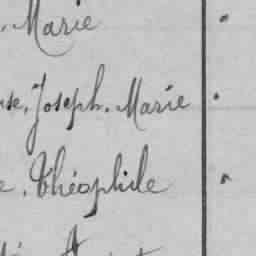 . Marie
use, Joseph. Marie
e. Théophile